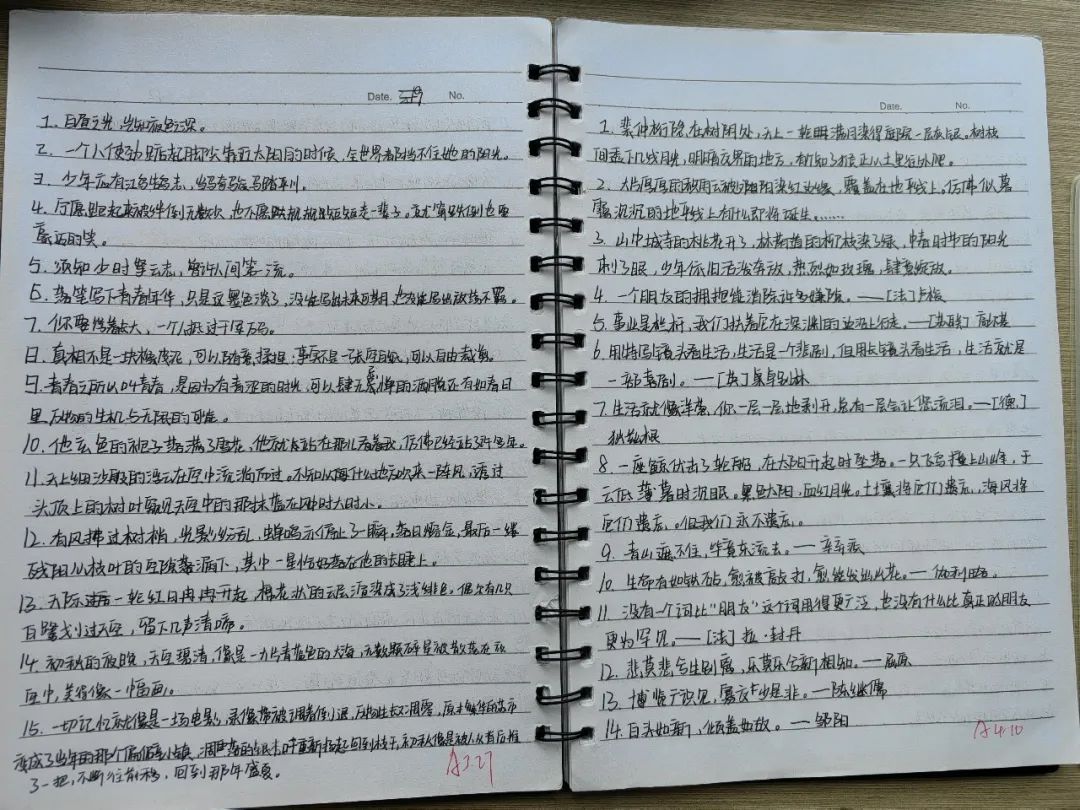 Date. No.
1. 白昼之光，岂知夜色之深。
2. 一个人使劲踮起脚尖靠近太阳的时候，全世界都挡不住她的阳光。
3. 少年应有鸿鹄志，当骑骏马踏平川。
4. 宁愿跑起来被绊倒无数次，也不愿规规矩矩走一辈子。就算跌倒也要
豪迈的笑。
5. 须知少时凌云志，曾许人间第一流。
6. 落笔写下青春年华，只是这墨色淡了，没能写出未来可期，也没能写出放荡不羁。
7. 你要悄悄长大，一个人抵过千军万马。
8. 真相不是一块橡皮泥，可以随意揉捏；事实不是一张白纸，可以自由裁剪。
9. 青春之所以叫青春，是因为有青涩的时光，可以肆无忌惮的洒脱还有如春日
里万物的生机与无限的可能。
10. 他玄色的袍子落满了雪花，他就站在那儿看着我，仿佛已经站了许多年。
11. 天上细沙般的浮云在空中流淌而过。不知从每什么地方吹来一阵风，透过
头顶上的树叶窥见天空中的那抹蓝在时大时小。
12. 有风拂过树梢，光影纷乱，蝉鸣声停止了一瞬，落日熔金，最后一缕
残阳从枝叶的空隙落漏下，其中一星恰好落在他的长睫上。
13. 天际边一轮红日冉冉升起，棉花状的云层渲染成了浅绯色。偶尔有几只
白鹭划过天空，留下几声清啼。
14. 初秋的夜晚，天空碧清，像是一片青蓝色的大海，无数颗碎星被散落在夜
空中，美得像一幅画。
15. 一切记忆就像是一场电影，录像带被调着倒退，万物生长又凋零，原来繁华的城市
变成了当年的那个偏僻小镇，凋落的银杏叶重新拾起回到枝干，初秋像是被人从背后推
了一把，不断往前移，回到那年盛夏。
A 3.27
Date. No.
1. 裴仲桁隐在树阴处，天上一轮明满月染得面层一层灰银。树枝
间透下几线月光，明暗交界的地方，有知了猴正从土里往外爬。
2. 大片厚厚的积雨云被夕阳染红边缘，覆盖在地平线上。仿佛似暮
霭沉沉的地平线上有什么即将诞生……
3. 山中城寺的桃花开了，林荫道的柳枝染了绿，中春时节的阳光
刺了眼，少年依旧活泼奔放，热烈如玫瑰，肆意绽放。
4. 一个朋友的拥抱能消除许多嫌隙。——[法]卢梭
5. 事业是栏杆，我们扶着它在深渊的边沿上行走。——[苏联]高尔基
6. 用特写镜头看生活，生活是一个悲剧，但用长镜头看生活，生活就是
一部喜剧。——[英]卓别林
7. 生活就像洋葱，你一层一层地剥开，总有一层会让您流泪。——[德]
8. 一座鲸伏击了轮船，在太阳升起时坠落。一只飞鸟撞上山峰，于
云低薄暮时沉眠。黑色太阳，血红月光。土壤将它们遗忘，海风将
它们遗忘。但我们永不遗忘。
9. 青山遮不住，毕竟东流去。——辛弃疾
10. 生命有如铁砧，愈被敲打，愈能发出火花。——伽利略
11. 没有一个词比“朋友”这个词用得更广泛，也没有什么比真正的朋友
更为罕见。——[法]拉·封丹
12. 悲莫悲兮生别离，乐莫乐兮新相知。——屈原
13. 博览广识见，寡交少是非。——陈继儒
14. 白头如新，倾盖如故。——邹阳
A 4.10